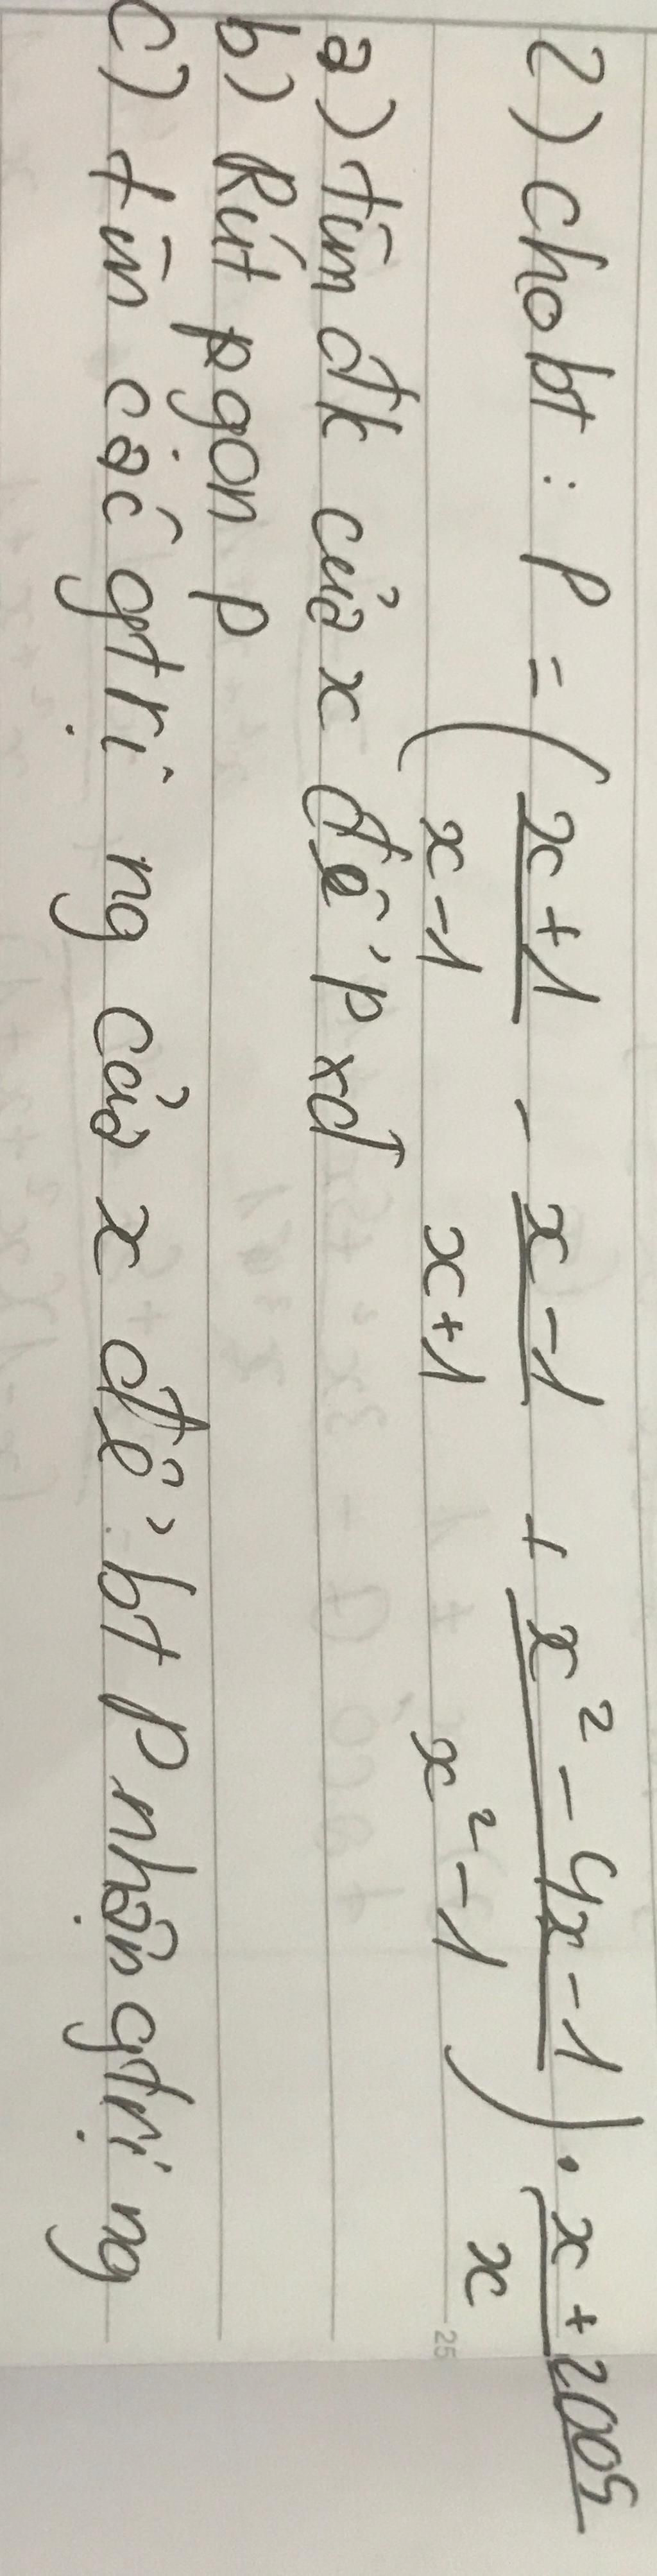 2) cho bt : P = ( x+1 / x-1 - x-1 / x+1 + x² - 4x - 1 / x² - 1 ) . x + 2005 / x
a) tìm đk của x để P xđ
b) Rút gọn P
c) tìm các gtrị ng của x để bt P nhận gtrị ng
25